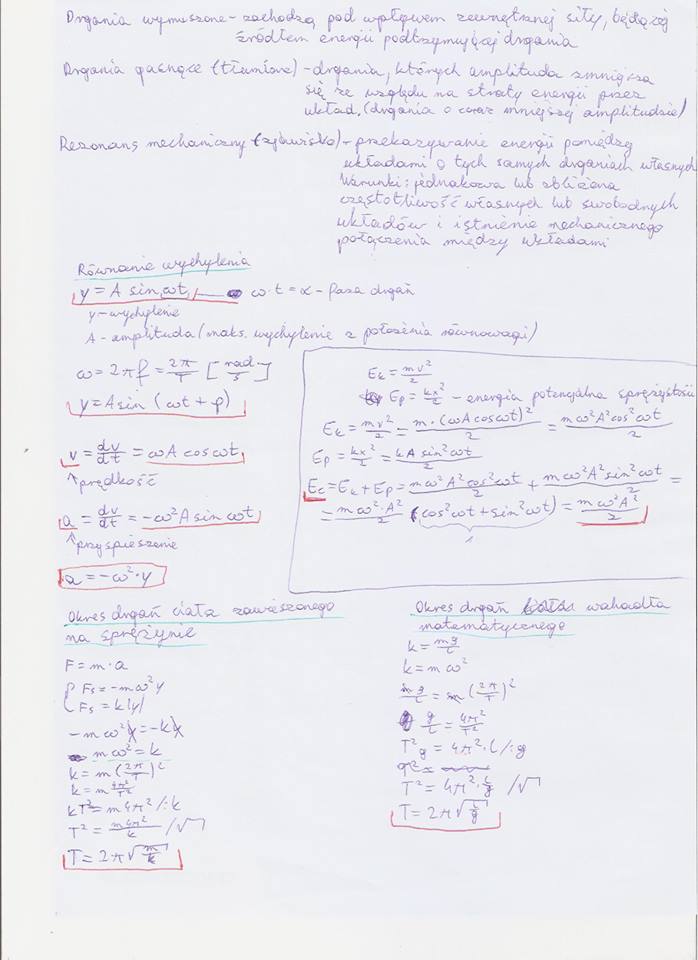 Drgania wymuszone - zachodzą pod wpływem zewnętrznej siły, będącej
źródłem energii podtrzymującej drgania
Drgania gasnące (tłumione) - drgania, których amplituda zmniejsza
się ze względu na straty energii przez
układ. (drgania o coraz mniejszej amplitudzie)
Rezonans mechaniczny (zjawisko) - przekazywanie energii pomiędzy
układami o tych samych drganiach własnych
Warunki: jednakowa lub zbliżona
częstotliwość własnych lub swobodnych
układów i istnienie mechanicznego
połączenia między układami
Równanie wychylenia
y = A sin ωt ω·t = α - faza drgań
y - wychylenie
A - amplituda (maks. wychylenie z położenia równowagi)
ω = 2πf = 2π/T [rad/s]
y = A sin (ωt + φ)
v = dv/dt = ωA cos ωt
↑ prędkość
a = dv/dt = -ω²A sin ωt
↑ przyspieszenie
a = -ω²·y
Ek = mv²/2
Ep = kx²/2 - energia potencjalna sprężystości
Ek = mv²/2 = m·(ωA cos ωt)²/2 = mω²A²cos²ωt/2
Ep = kx²/2 = kA sin²ωt/2
Ec = Ek + Ep = mω²A²cos²ωt/2 + mω²A²sin²ωt/2 =
= mω²·A²/2 (cos²ωt + sin²ωt) = mω²A²/2
1
Okres drgań ciała zawieszonego
na sprężynie
F = m·a
{ Fs = -mω²y
{ Fs = k|y|
-mω²y = -ky
mω² = k
k = m(2π/T)²
k = m 4π²/T²
kT² = m4π² /:k
T² = m4π²/k /√
T = 2π√(m/k)
Okres drgań wahadła
matematycznego
k = mg/l
k = mω²
mg/l = m(2π/T)²
g/l = 4π²/T²
T²g = 4π²·l /:g
T² =
T² = 4π²·l/g /√
T = 2π√(l/g)